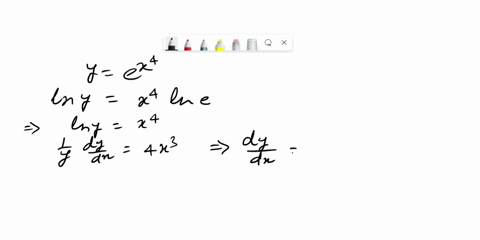 y = e^{x^4}
ln y = x^4 ln e
⇒ ln y = x^4
1/y dy/dx = 4x^3 ⇒ dy/dx =